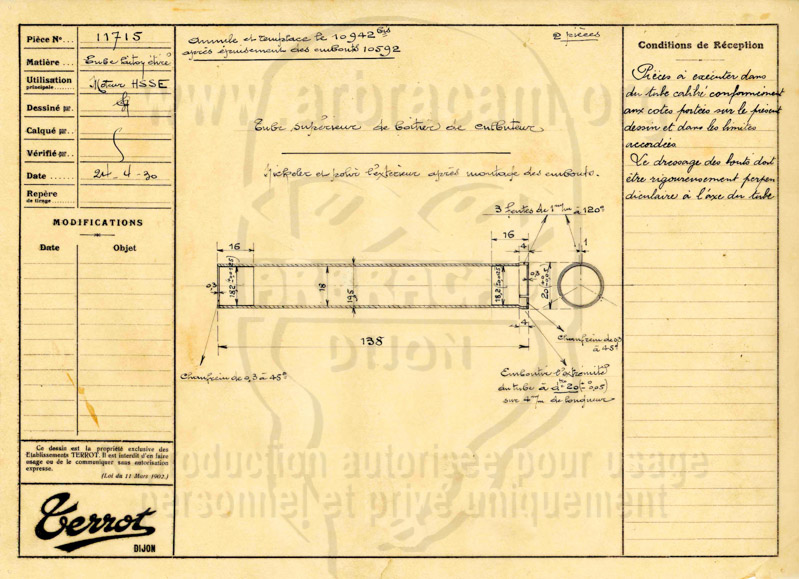 Pièce N° ... 11715
Matière ... Tube laiton étiré
Utilisation
principale ... Moteur HSSE
Dessiné par.
Calqué par.
Vérifié par..
Date ..... 24-4-30
Repère
de tirage
MODIFICATIONS
Date Objet
Ce dessin est la propriété exclusive des
Etablissements TERROT. Il est interdit d'en faire
usage ou de le communiquer sans autorisation
expresse.
(Loi du 11 Mars 1902.)
Terrot
DIJON
Annule et remplace le 10942 bis
après épuisement des embouts 10592
2 pièces
Tube supérieur de boîtier de culbuteur
Nickeler et polir l'extérieur après montage des embouts.
3 fentes de 1m/m à 120°
16
16
4
1
0,3
18,2
18
19,5
18,2
20
4
138
Chanfrein de 0,3 à 45°
Chanfrein de 0,3
à 45°
Emboutir l'extrémité
du tube à d^tre 20
sur 4m/m de longueur
Conditions de Réception
Pièces à exécuter dans
du tube calibré conformément
aux cotes portées sur le présent
dessin et dans les limites
accordées
Le dressage des bouts doit
être rigoureusement perpen
diculaire à l'axe du tube
www.arbracam.o
ARBRACAM
DIJON
production autorisée pour usage
personnel et privé uniquement